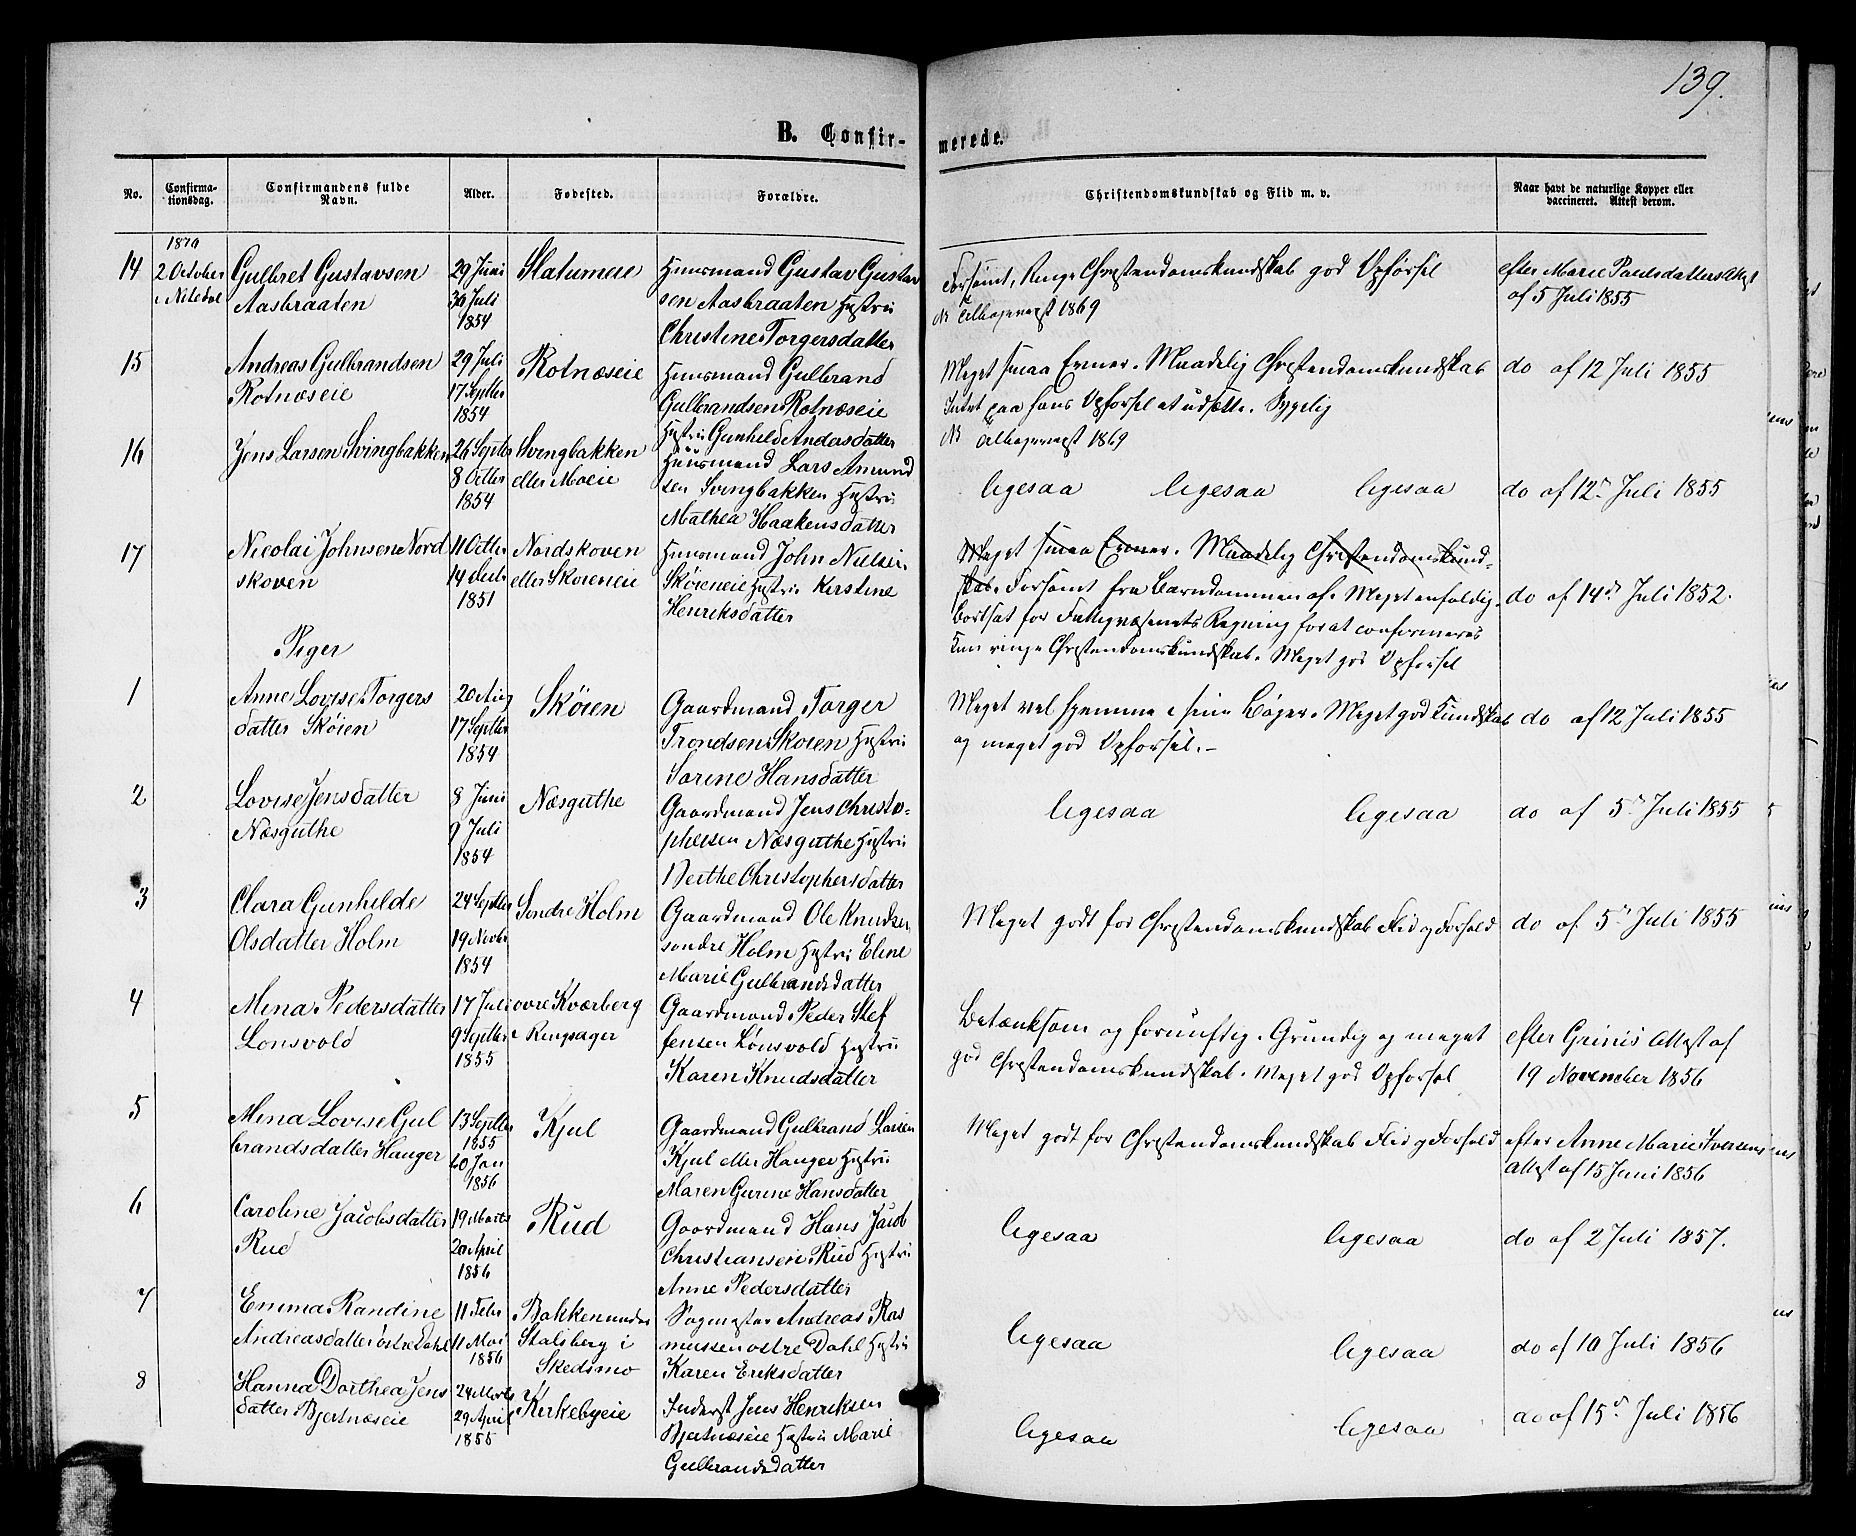 139.
B. Confir-
merede.
No.
Confirma-
tionsdag.
Confirmandens fulde
Navn.
Alder.
Fødested.
Forældre.
Christendomskundskab og Flid m. v.
Naar havt de naturlige Kopper eller
vaccineret. Attest derom.
1870
14
2 October
i Nitedal
Gulbret Gustavsen
Aasbraaten
29 Juni
30 Juli
1854
Slatumeie
Huusmand Gustav Gustav
sen Aasbraaten Hustru
Christine Torgersdatter
Forsömt, Ringe Christendomskundskab god Opførsel
1869
efter Marie Paulsdatters Attest
af 5 Juli 1855
15
Andreas Gulbrandsen
Rotnæseie
29 Juli
17 Septbr
1854
Rotnæseie
Huusmand Gulbrand
Gulbrandsen Rotnæseie
Hustru Gunhild Andersdatter
Meget smaa Evner. Maadelig Christendomskundskab
Intet paa hans Opførsel at udsætte. Sygelig
1869
do af 12 Juli 1855
16
Jens Larsen Svingbakken
26 Septbr
8 Octbr
1854
Svingbakken
eller Moeie
Huusmand Lars Amund
sen Svingbakken Hustru
Mathea Haakensdatter
ligesaa ligesaa ligesaa
do af 12te Juli 1855
17
Nicolai Johnsen Nord
skoven
11 Octbr
14 Decbr
1851
Nordskoven
eller Skøieneie
Huusmand John Nielsen
Skøieneie Hustru Kirstine
Henriksdatter
Meget smaa Evner. Maadelig Christendomskund-
skab. Forsömt fra Barndommen af. Meget enfoldig.
Bortsat for Fattigvæsenets Regning for at confirmeres
Kun ringe Christendomskundskab. Meget god Opførsel
do af 14de Juli 1852.
Piger
1
Anne Lovise Torgers
datter Skøien
20 Aug
17 Septbr
1854
Skøien
Gaardmand Torger
Trondsen Skøien Hustru
Sorine Hansdatter
Meget vel hjemme i sine Bøger. Meget god Kundskab
og meget god Opførsel. -
do af 12 Juli 1855
2
Lovise Jensdatter
Næsguthe
8 Juni
9 Juli
1854
Næsguthe
Gaardmand Jens Christo-
phersen Næsguthe Hustru
Berthe Christophersdatter
ligesaa ligesaa
do af 5te Juli 1855
3
Clara Gunhilde
Olsdatter Holm
24 Septbr
19 Novbr
1854
Søndre Holm
Gaardmand Ole Knudsen
søndre Holm Hustru Eline
Marie Gulbrandsdatter
Meget godt for Christendomskundskab Flid og Forhold
do af 5te Juli 1855
4
Mina Pedersdatter
Lonsvold
17 Juli
9 Septbr
1855
øvre Kværberg
i Ringsager
Gaardmand Peder Stef
fensen Lønsvold Hustru
Karen Knudsdatter
Betænksom og fornuftig. Grundig og meget
god Christendomskundskab. Meget god Opførsel
efter Grinis Attest af
19 November 1856
5
Mina Lovise Gul
brandsdatter Hauger
13 Septbr
1855
20 Jan
1856
Kjul
Gaardmand Gulbrand Larsen
Kjul eller Hauger Hustru
Maren Gurine Hansdatter
Meget godt for Christendomskundskab Flid og Forhold
efter Anne Marie Iversens
Attest af 15 Juni 1856
6
Caroline Jacobsdatter
Rud
19 Marts
20 April
1856
Rud
Gaardmand Hans Jacob
Christiansen Rud Hustru
Anne Pedersdatter
ligesaa ligesaa
do af 2 Juli 1857.
7
Emma Randine
Andreasdatter østre Dahl
11 Febr
11 Mai
1856
Bakken under
Stalsberg i
Skedsmo
Sagmester Andreas Ras
mussen østre Dahl Hustru
Karen Eriksdatter
ligesaa ligesaa
do af 10 Juli 1856
8
Hanna Dorthea Jens
datter Bjertnæseie
24 Marts
29 April
1855
Kirkebyeie
Inderst Jens Henriksen
Bjertnæseie Hustru Marie
Gulbrandsdatter
ligesaa ligesaa
do af 15de Juli 1856